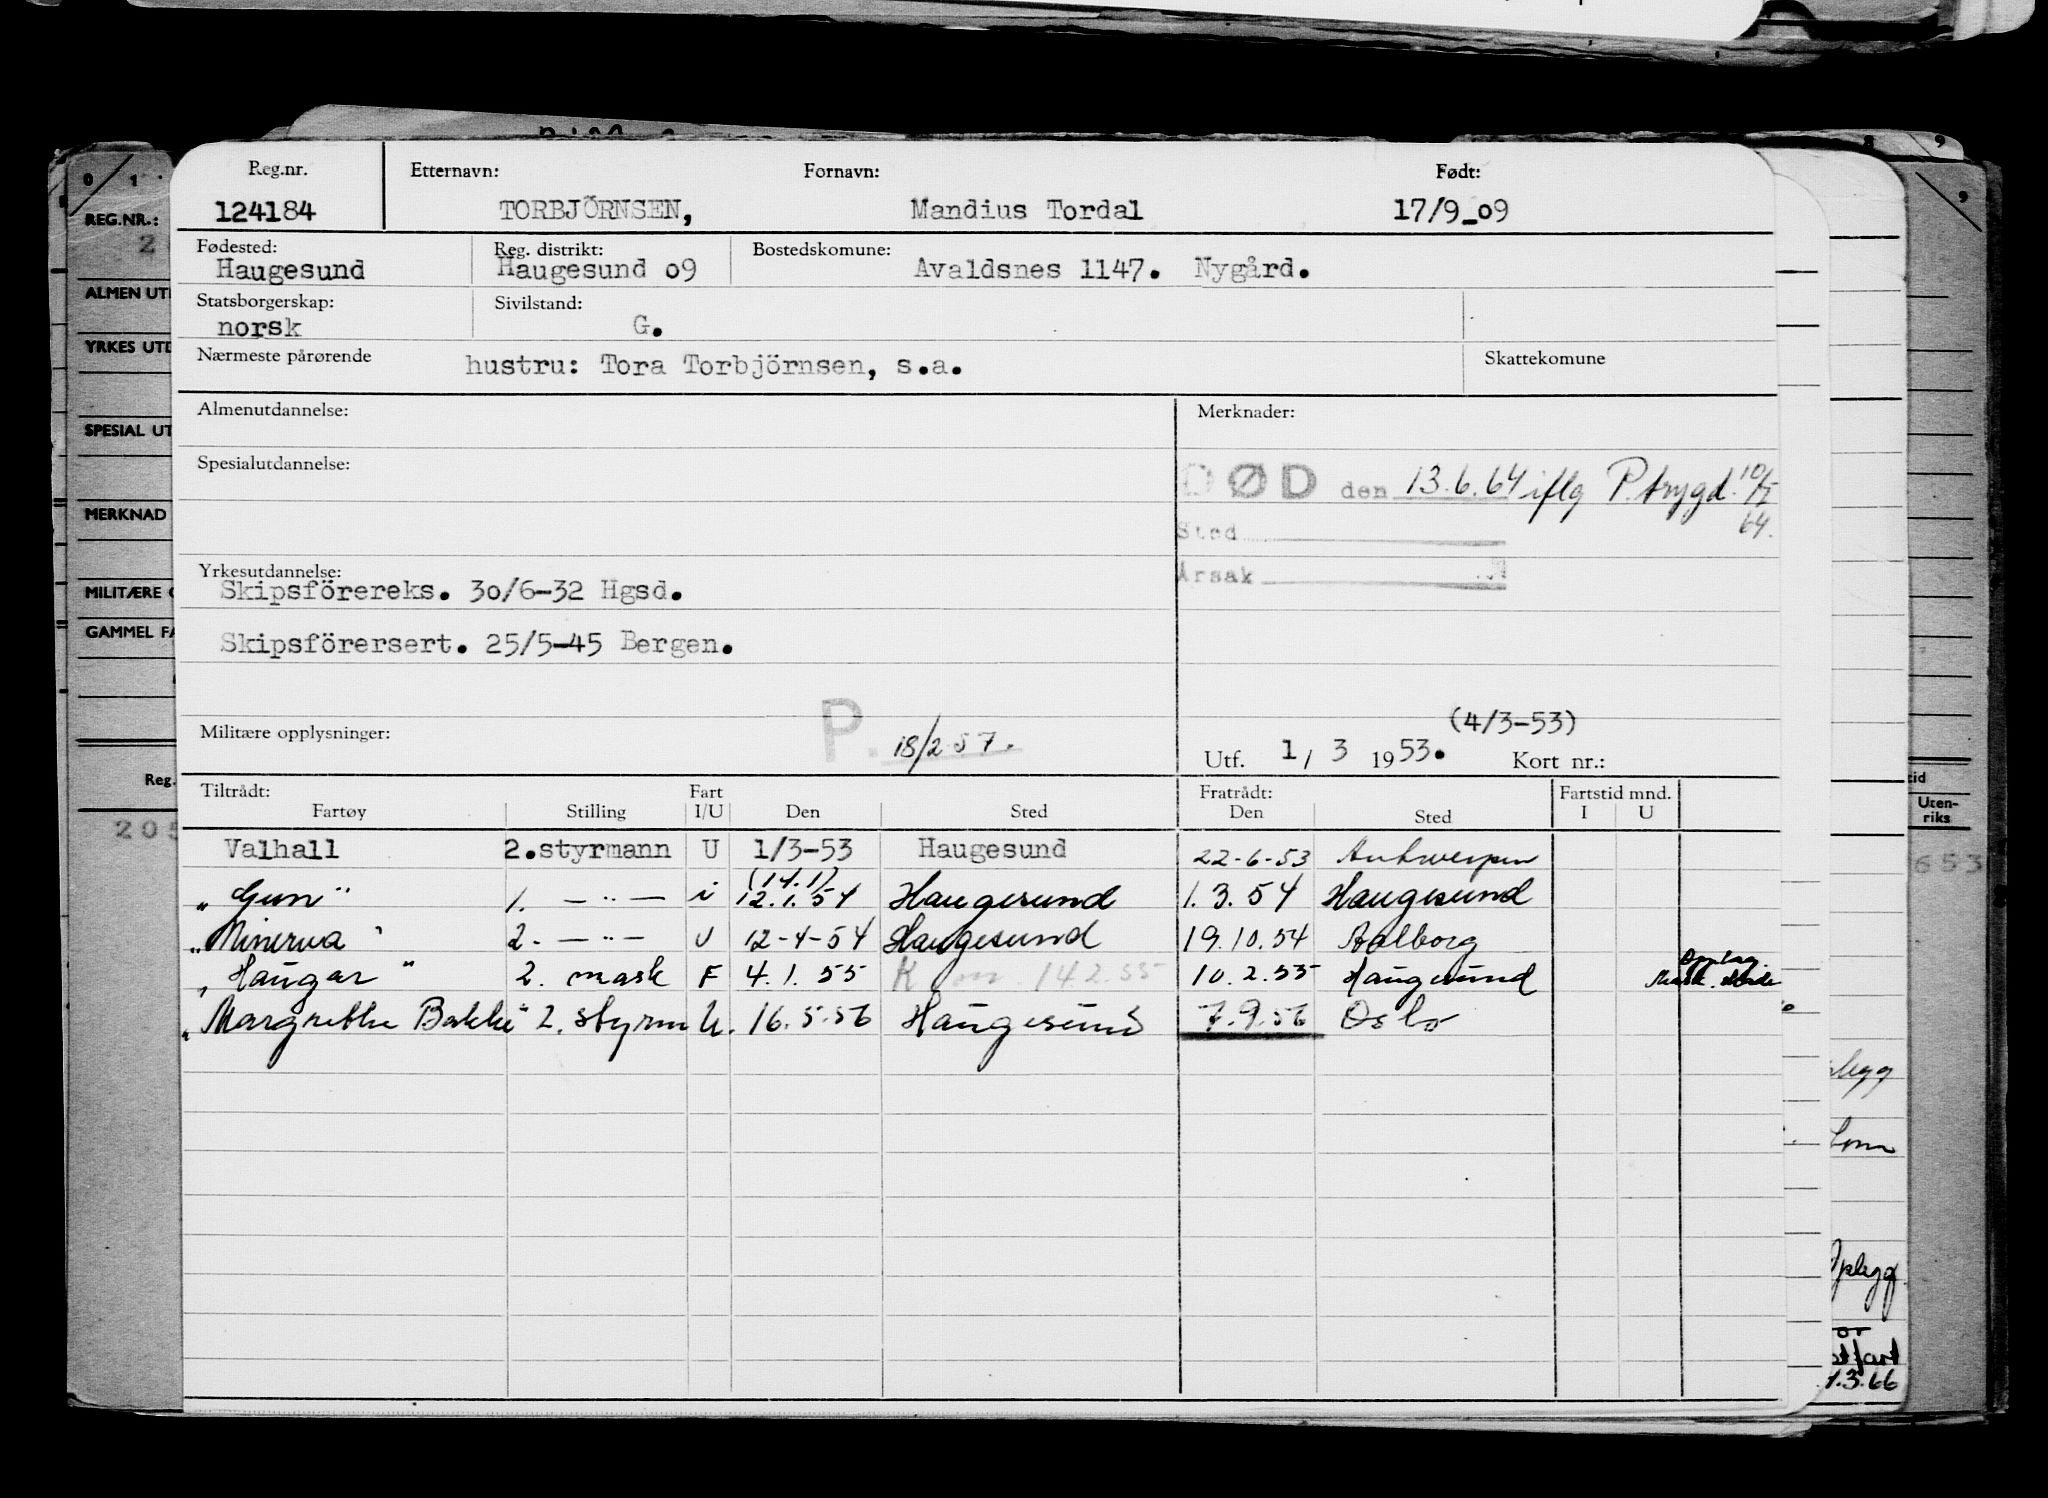 Reg.nr. Etternavn: Fornavn: Født:
124184 TORBJÖRNSEN, Mandius Tordal 17/9-09
Fødested: Reg. distrikt: Bostedskomune:
Haugesund Haugesund 09 Avaldsnes 1147. Nygård.
Statsborgerskap: Sivilstand:
norsk G.
Nærmeste pårørende hustru: Tora Torbjörnsen, s.a. Skattekomune
Almenutdannelse: Merknader:
Spesialutdannelse:
DØD den 13.6.64 iflg P.trygd. 10/
64.
Sted
Årsak
Yrkesutdannelse:
Skipsförereks. 30/6-32 Hgsd.
Skipsförersert. 25/5-45 Bergen.
Militære opplysninger: P. 18/2 57.
(4/3-53)
Utf. 1/ 3 1953. Kort nr.:
Tiltrådt: Fart Fratrådt: Fartstid mnd.
Fartøy Stilling I/U Den Sted Den Sted I U
Valhall 2.styrmann U 1/3-53 Haugesund 22-6-53 Antwerpen
(14.1)
„Gun" 1. — " — i 12.1.54 Haugesund 1.3.54 Haugesund
„Minerva" 2. — " — U 12-4-54 Haugesund 19.10.54 Aalborg
„Haugar" 2. mask F 4.1.55 14 2.55 10.2.55 Haugesund
„Margrethe Bakke" 2. styrm U. 16.5.56 Haugesund 7.9.56 Oslo
0 1
REG.NR.:
2
ALMEN UT
YRKES UTD
SPESIAL UT
MERKNAD
MILITÆRE
GAMMEL FA
Reg.
205
8 9
9
tid
Uten-
riks
653